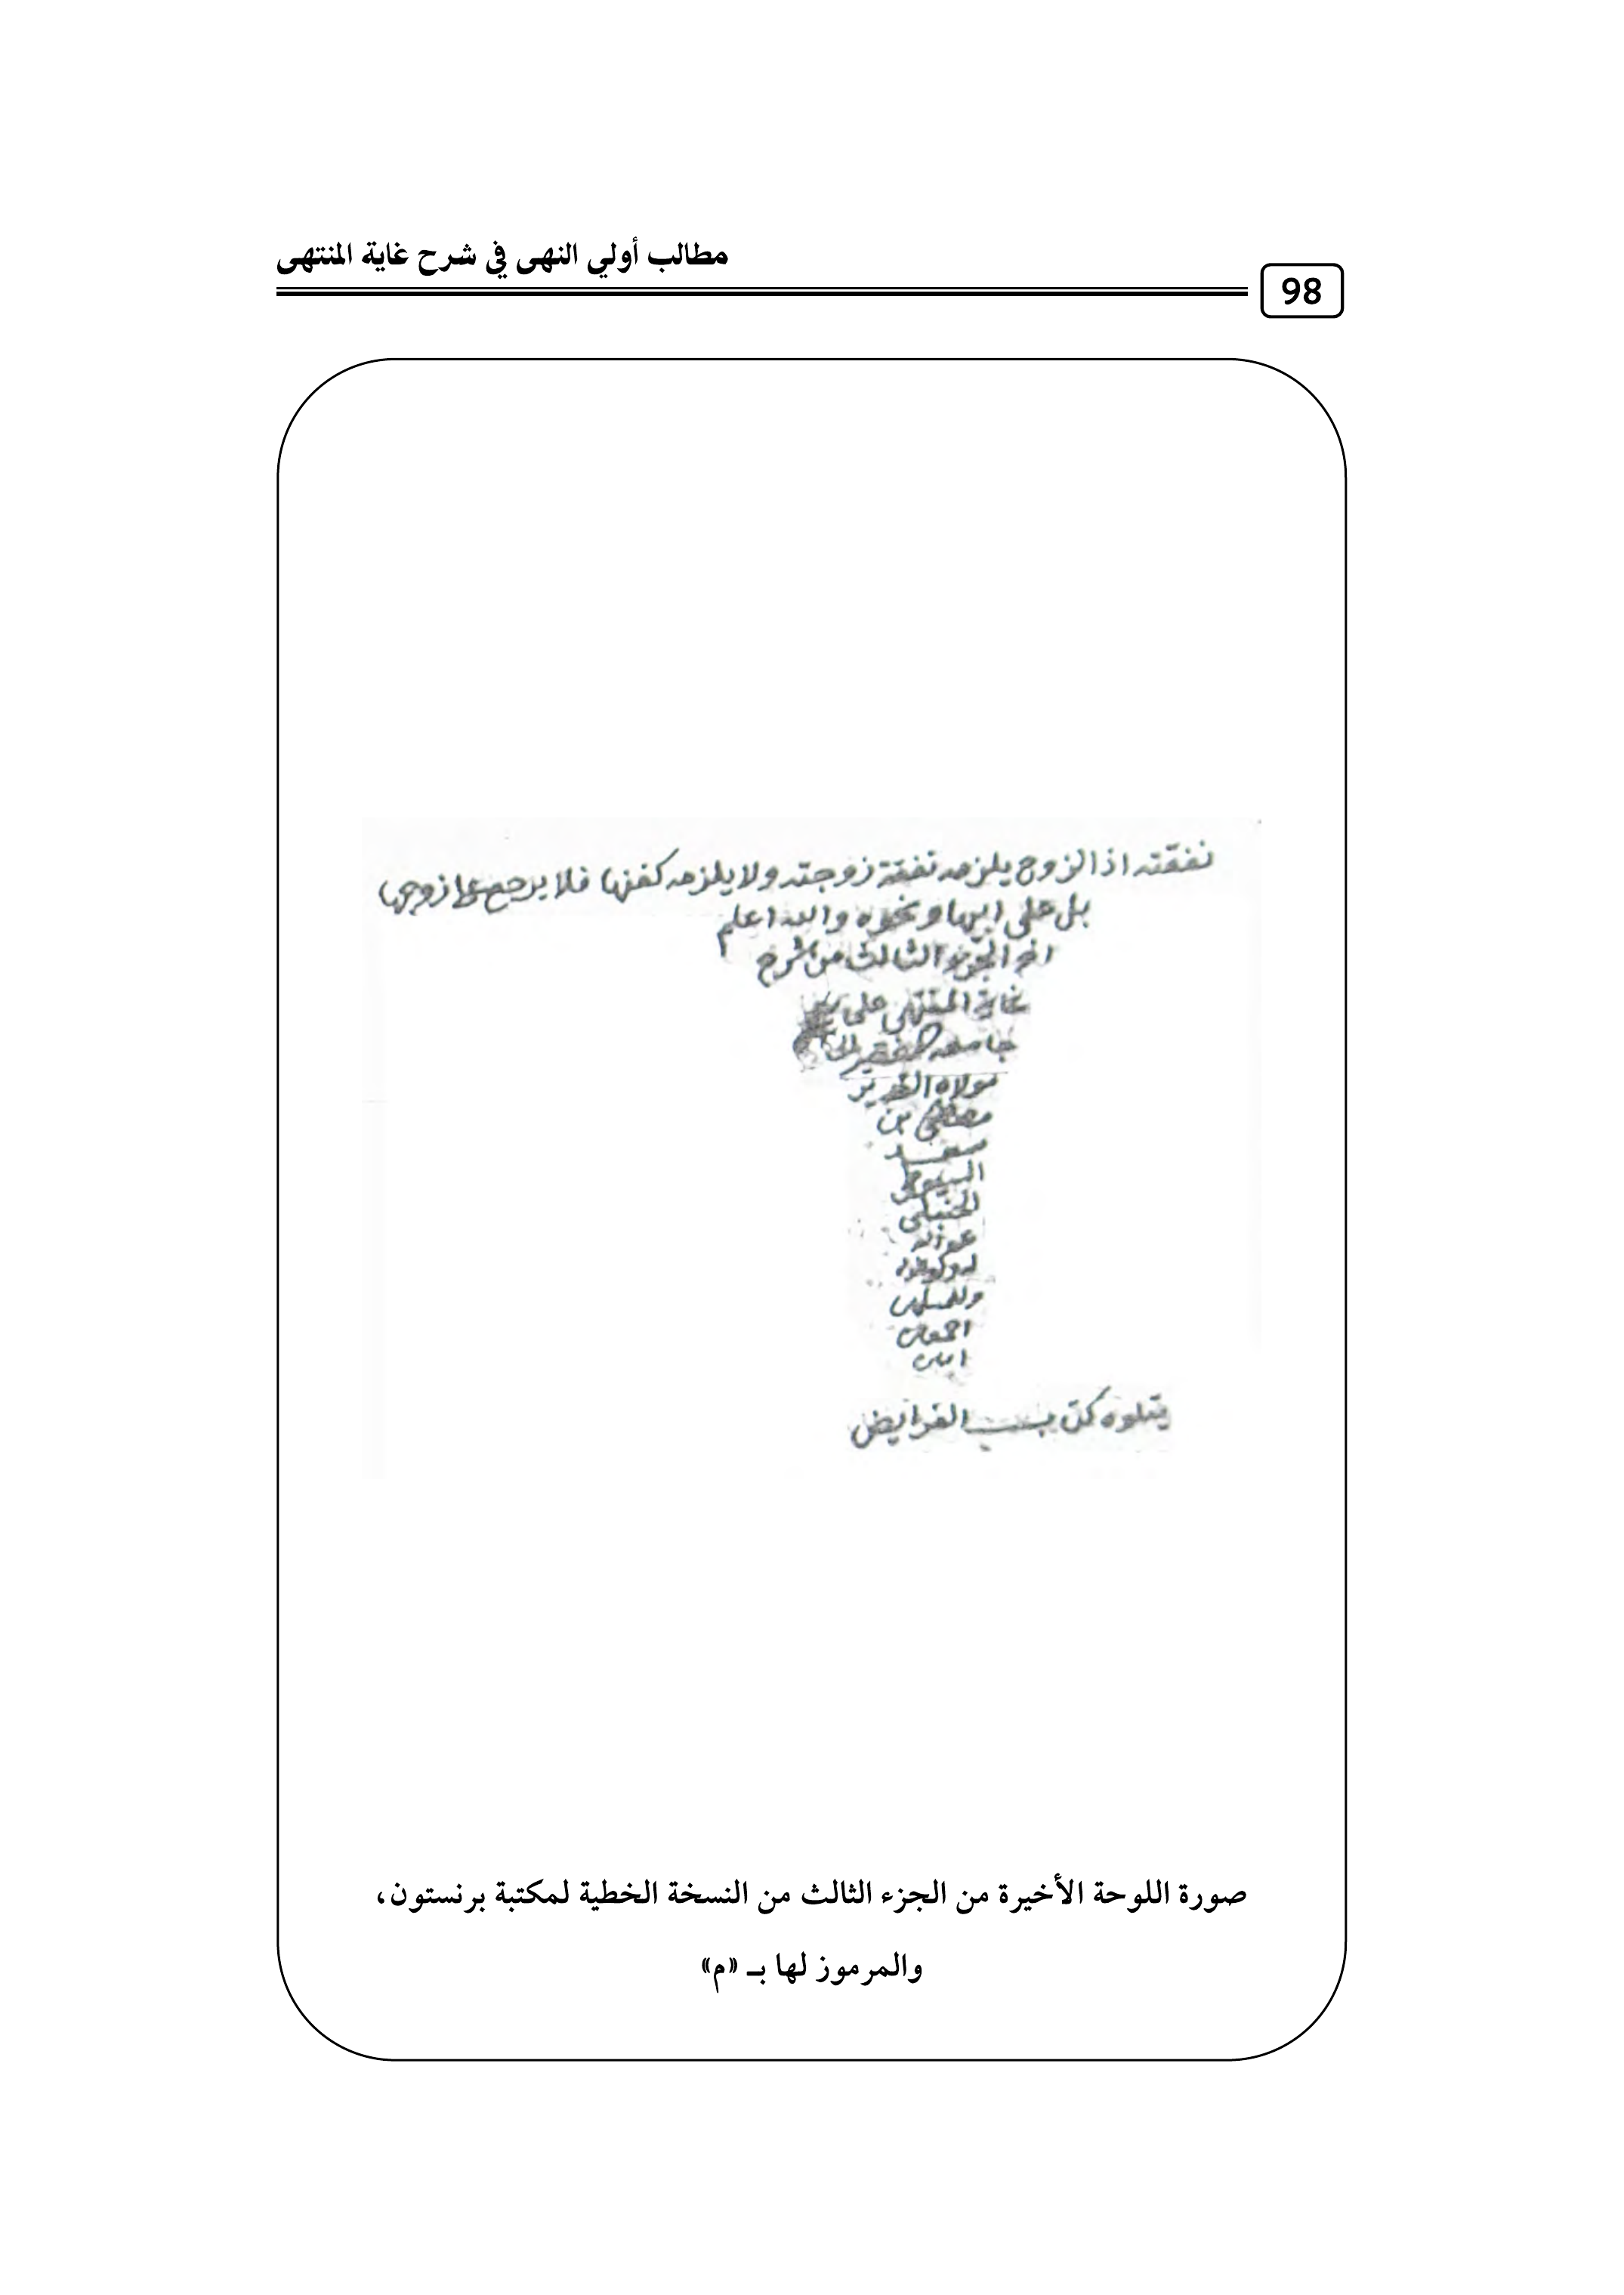 مطالب أولي النهى في شرح غاية المنتهى
98
نفقته اذ الزوج يلزمه نفقة زوجته ولا يلزمه كفنها فلا يرجع على زوجها
بل على ابيها ونحوه والله اعلم
اخر الجزء الثالث من شرح
غاية المنتهى على يد
جامعه الفقير الى
مولاه القدير
مصطفى بن
سعد
السيوطي
الحنبلي
غفر الله
له ولوالديه
وللمسلمين
اجمعين
امين
يتلوه كتـــاب الفرايض
صورة اللوحة الأخيرة من الجزء الثالث من النسخة الخطية لمكتبة برنستون،
والمرموز لها بـ «م»